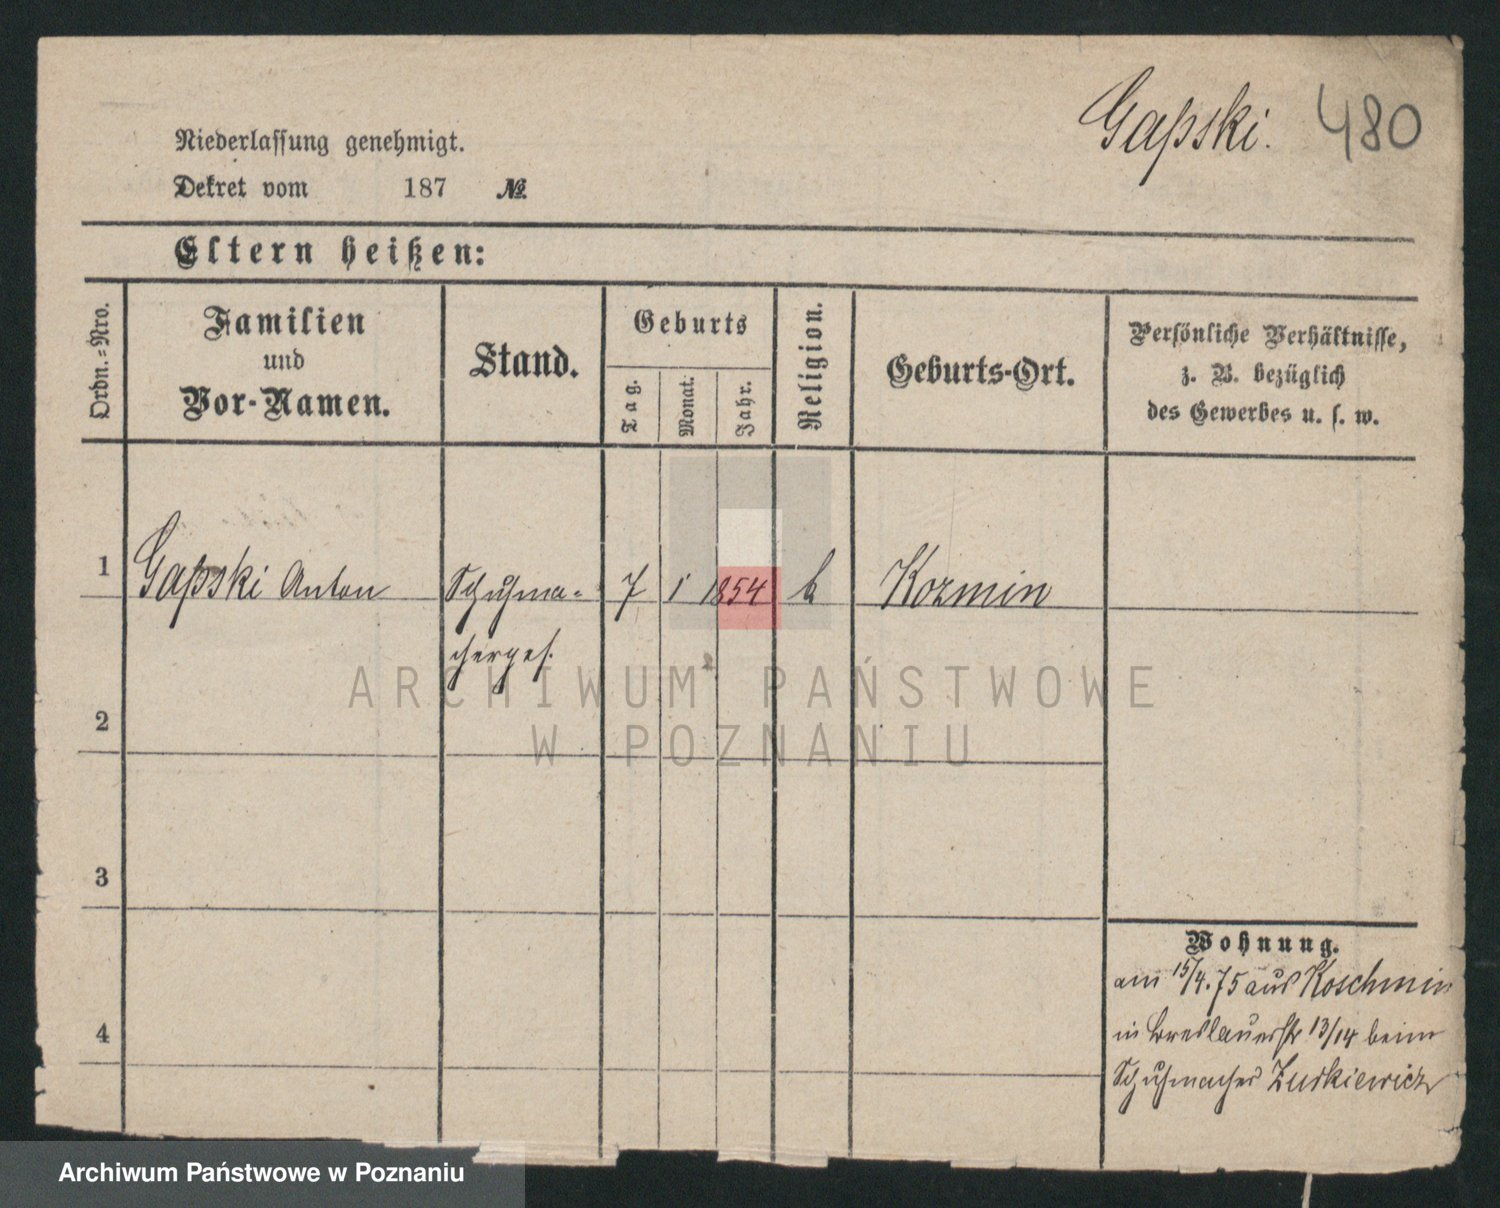 Gapski. 480
Niederlassung genehmigt.
Dekret vom 187 №
Eltern heißen:
Ordn.=Nro.
Familien
und
Vor-Namen.
Stand.
Geburts
Tag.
Monat.
Jahr.
Religion.
Geburts-Ort.
Persönliche Verhältnisse,
z. B. bezüglich
des Gewerbes u. s. w.
1 Gapski Anton Schuhma= 7 1 1854 k Kozmin
cherges.
2
3
4
Wohnung.
am 15/4.75 aus Koschmin
in Breslauerstr 13/14 beim
Schuhmacher Zurkiewicz
ARCHIWUM PAŃSTWOWE
W POZNANIU
Archiwum Państwowe w Poznaniu